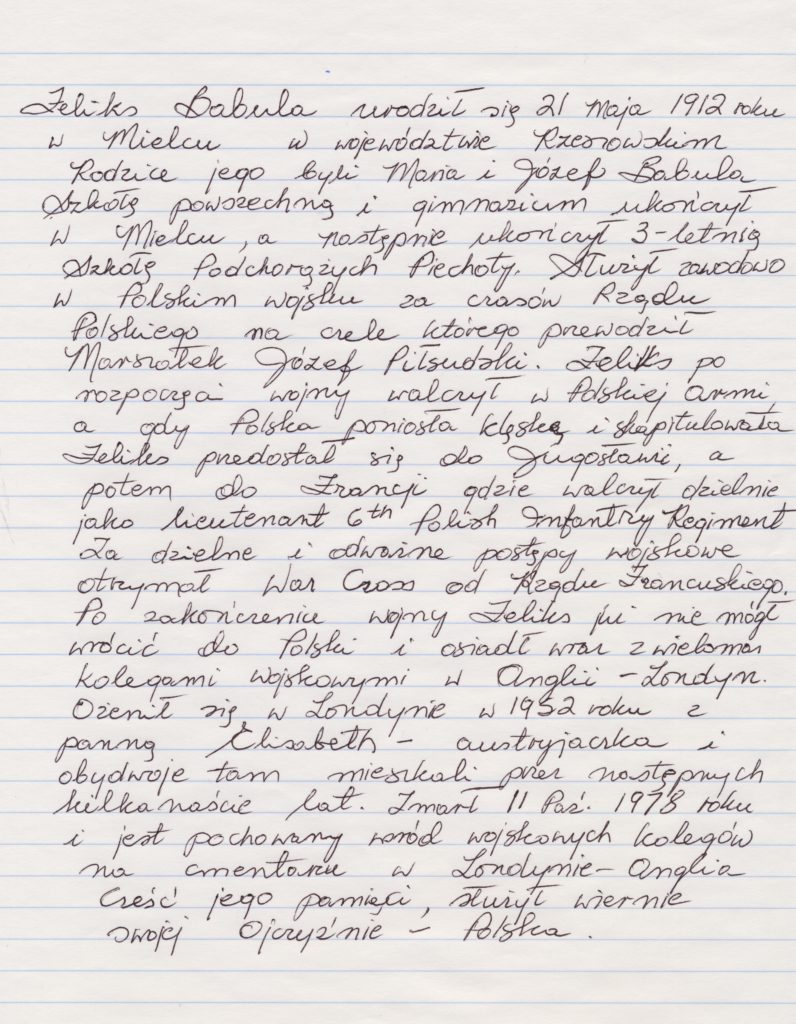 Feliks Babula urodził się 21 maja 1912 roku
w Mielcu w województwie Rzeszowskim
Rodzice jego byli Maria i Józef Babula
Szkołę powszechną i gimnazium ukończył
w Mielcu, a następnie ukończył 3-letnią
Szkołę Podchorążych Piechoty. Służył zawodowo
w Polskim wojsku za czasów Rządu
Polskiego na czele którego przewodził
Marszałek Józef Piłsudski. Feliks po
rozpoczęci wojny walczył w Polskiej armi,
a gdy Polska poniosła klęskę i skapitulowała
Feliks przedostał się do Jugosławii, a
potem do Francji gdzie walczył dzielnie
jako lieutenant 6th Polish Infantry Regiment
Za dzielne i odważne postępy wojskowe
otrzymał War Cross od Rządu Francuskiego.
Po zakończeniu wojny Feliks już nie mógł
wrócić do Polski i osiadł wraz z wieloma
kolegami wojskowymi w Anglii - Londyn.
Ożenił się w Londynie w 1952 roku z
panną Elisabeth - austryjaczka i
obydwoje tam mieszkali przez następnych
kilkanaście lat. Zmarł 11 Paź. 1978 roku
i jest pochowany wśród wojskowych kolegów
na cmentarzu w Londynie - Anglia
Cześć jego pamięci, służył wiernie
swojej Ojczyźnie - Polska.